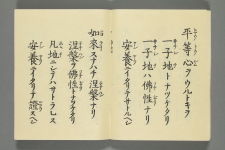 平等心ヲウルトキヲ
一子地トナツケタリ
一子地ハ佛性ナリ
安養ニイタリテサトルヘシ
如來スナハチ涅槃ナリ
涅槃ヲ佛性トナツケタリ
凡地ニシテハサトラレス
安養ニイタリテ證スヘシ